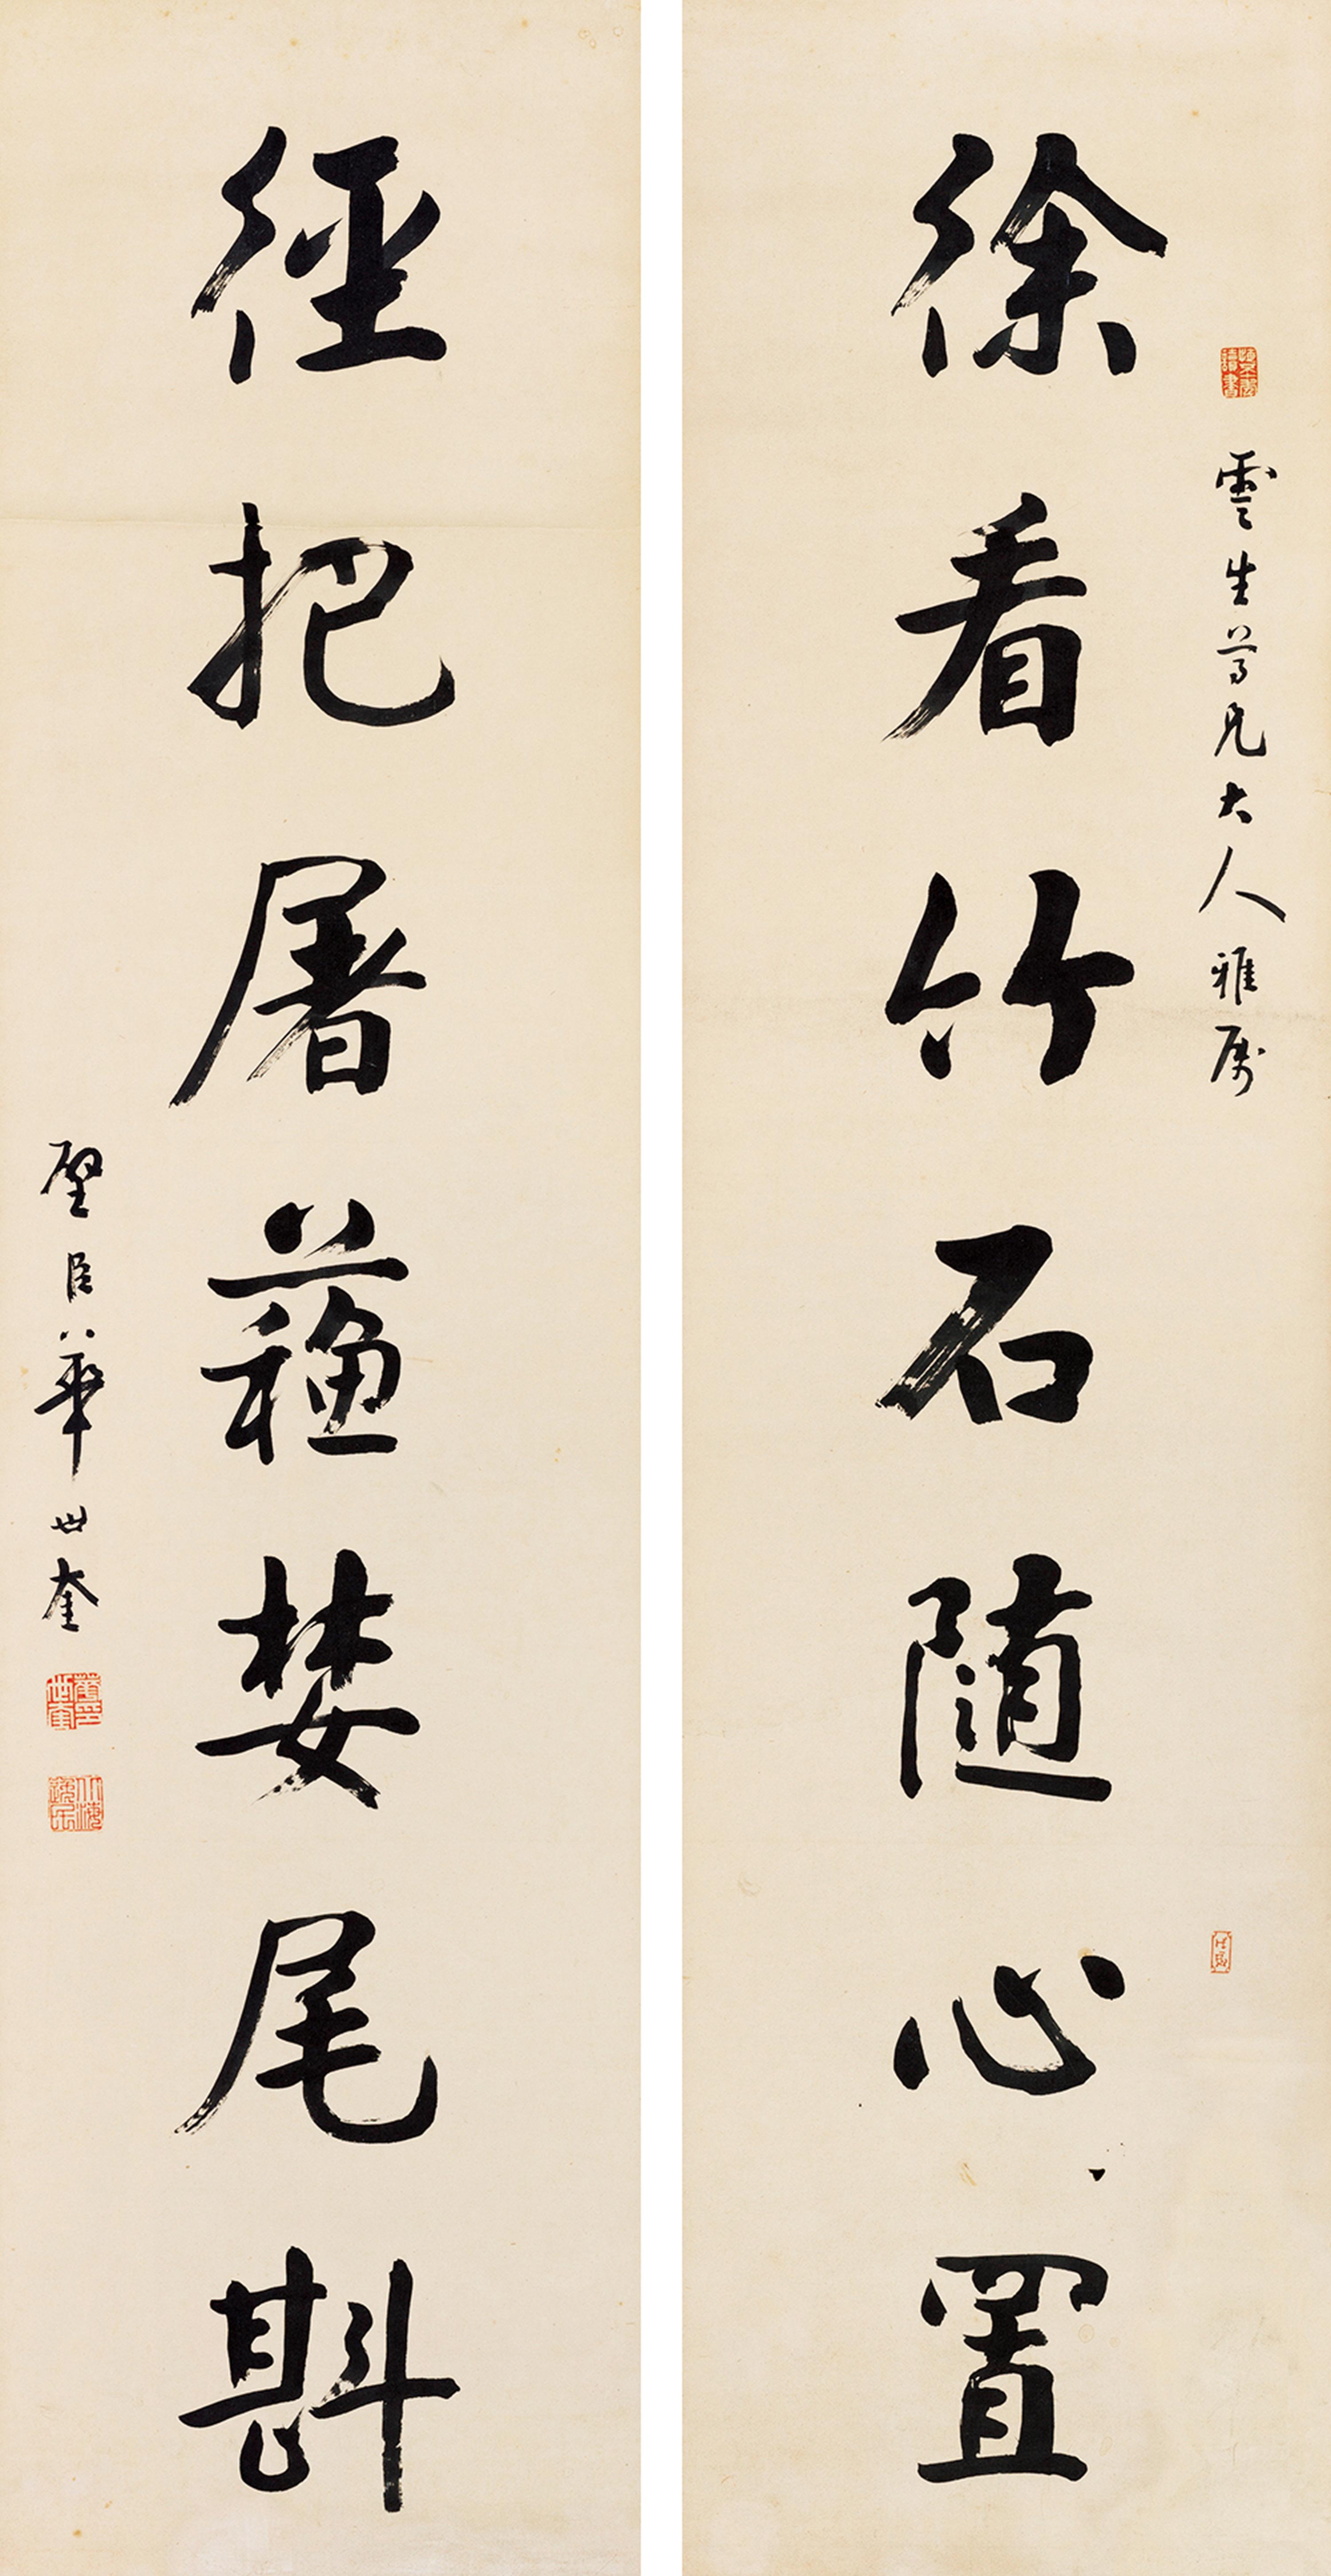 雲生尊兄大人雅屬
徐看竹石隨心置
徑把屠蘇婪尾斟
璧臣華世奎